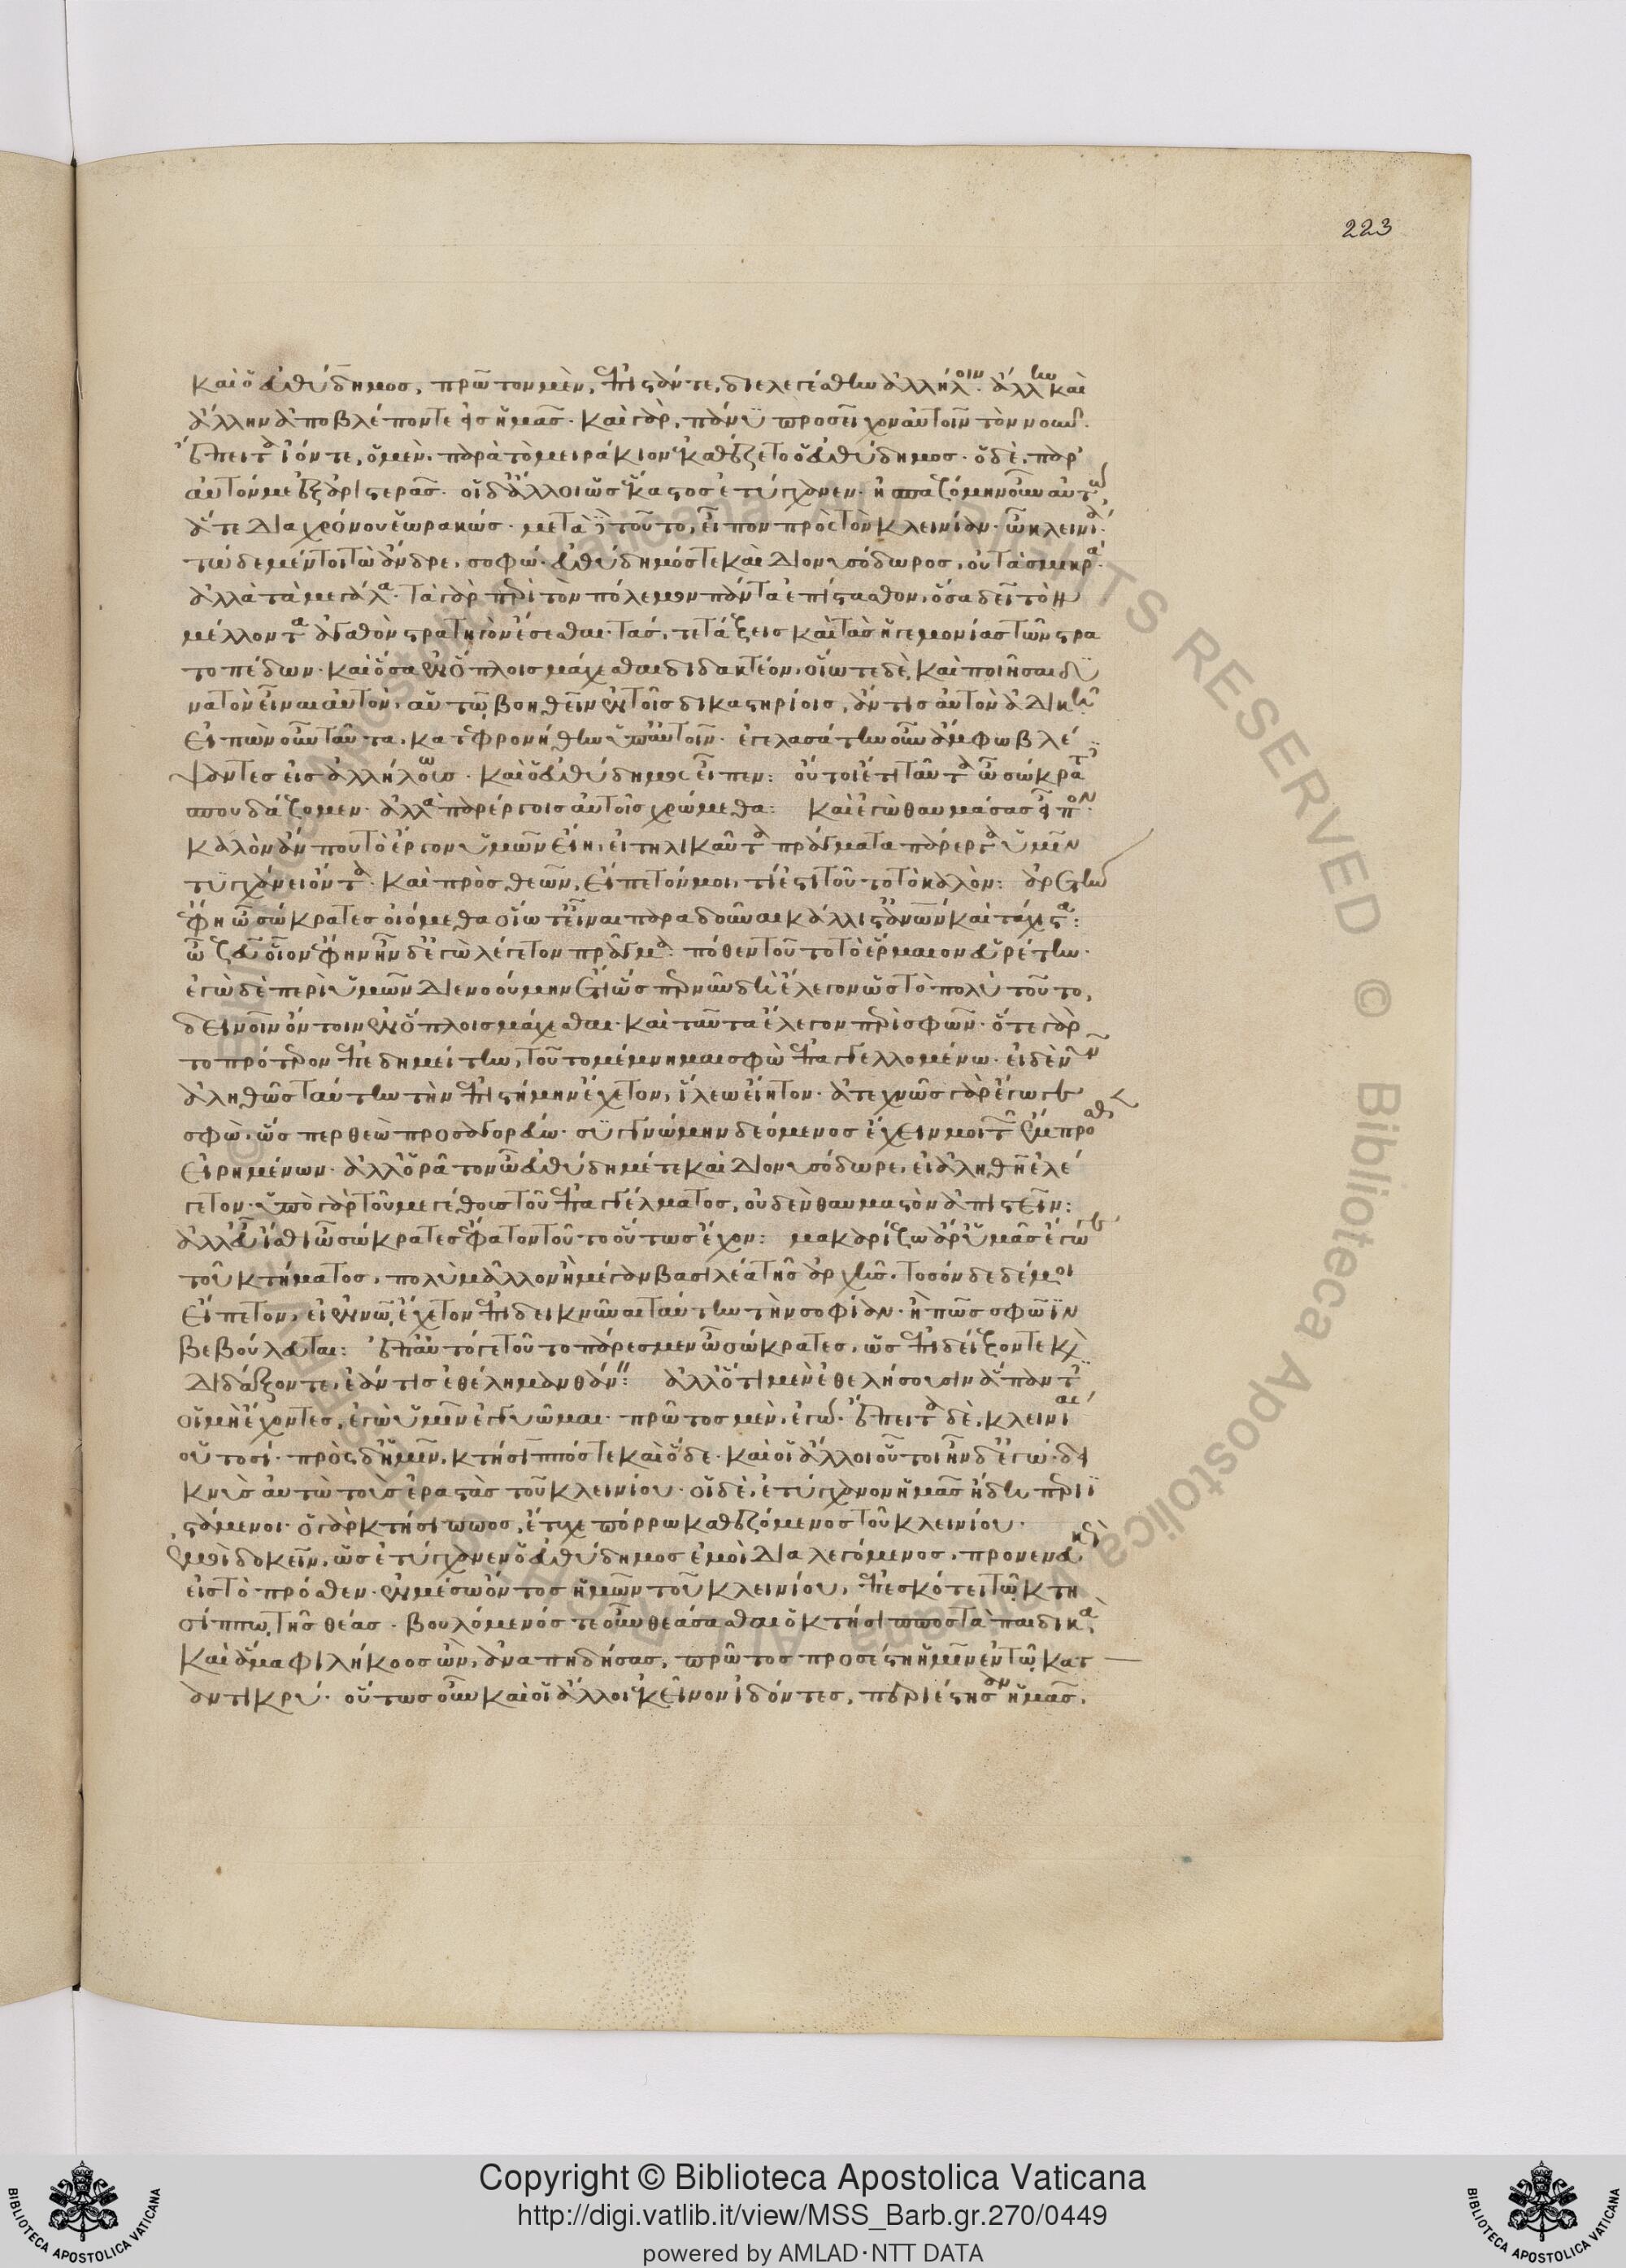 223
καὶ ὁ εὐθύδημος, πρῶτον μὲν, ἐπιστάντε, διελεγέσθην ἀλλήλοιν· ἄλλην καὶ
ἄλλην ἀποβλέποντε εἰς ἡμᾶς· καὶ γὰρ, πάνυ προσεῖχον αὐτοῖν τὸν νοῦν·
ἔπειτα ἰόντε, ὁ μὲν, παρὰ τὸ μειράκιον ἐκαθέζετο ὁ εὐθύδημος· ὁ δὲ, παρ'
αὐτόν με ἐξ ἀριστερᾶς· οἱ δ' ἄλλοι ὡς ἕκαστος ἐτύγχανεν· ἠσπαζόμην οὖν αὐτὼ
ἅτε διὰ χρόνου ἑωρακώς· μετὰ δὲ τοῦτο, εἶπον πρὸς τὸν κλεινίαν· ὦ κλεινία·
τώδε μέντοι τὼ ἄνδρε, σοφώ· εὐθύδημός τε καὶ διονυσόδωρος, οὐ τὰ σμικρά·
ἀλλὰ τὰ μεγάλα· τὰ γὰρ περὶ τὸν πόλεμον πάντα ἐπίστασθον, ὅσα δεῖ τὸν
μέλλοντα ἀγαθὸν στρατηγὸν ἔσεσθαι· τάς, τε τάξεις καὶ τὰς ἡγεμονίας τῶν στρα
τοπέδων· καὶ ὅσα ἐν ὅπλοις μάχεσθαι διδακτέον, οἵω τε δὲ, καὶ ποιῆσαι δυ
νατὸν εἶναι αὐτὸν, αὑτῷ βοηθεῖν ἐν τοῖς δικαστηρίοις, ἄν τις αὐτὸν ἀδικῇ
εἰπὼν οὖν ταῦτα, κατεφρονήθην ὑπ' αὐτοῖν· ἐγελασάτην οὖν ἄμφω βλέ
ψαντες εἰς ἀλλήλους· καὶ ὁ εὐθύδημος εἶπεν: οὔτοι ἔτι ταῦτα ὦ σώκρατες
σπουδάζομεν· ἀλλὰ παρέργοις αὐτοῖς χρώμεθα: καὶ ἐγὼ θαυμάσας εἶπον·
καλὸν ἄν που τὸ ἔργον ὑμῶν εἴη, εἰ τηλικαῦτα πράγματα πάρεργα ὑμῖν
τυγχάνει ὄντα· καὶ πρὸς θεῶν, εἴπετόν μοι, τί ἐστι τοῦτο τὸ καλὸν: ἀρετὴν
ἔφη ὦ σώκρατες οἰόμεθα οἵω τ' εἶναι παραδοῦναι κάλλιστ' ἀνθρώπων καὶ τάχιστα:
ὦ ζεῦ οἷον ἔφην ἦν δ' ἐγὼ λέγετον πρᾶγμα: πόθεν τοῦτο τὸ ἕρμαιον εὑρέτην·
ἐγὼ δὲ περὶ ὑμῶν διενοούμην ἔτι ὡς περ νῦν δὴ ἔλεγον ὡς τὸ πολὺ τοῦτο,
δεινοῖν ὄντοιν ἐν ὅπλοις μάχεσθαι· καὶ ταῦτα ἔλεγον περὶ σφῶν· ὅτε γὰρ
τὸ πρότερον ἐπεδημείτην, τοῦτο μέμνημαι σφὼ ἐπαγγελλομένω· εἰ δὲ νῦν
ἀληθῶς ταύτην τὴν ἐπιστήμην ἔχετον, ἵλεω εἴητον· ἀτεχνῶς γὰρ ἔγωγε
σφὼ, ὥσπερ θεὼ προσαγορεύω· συγγνώμην δεόμενος ἔχειν μοι τῶν ἔμπροσθεν
εἰρημένων· ἀλλ' ὁρᾶτον ὦ εὐθύδημέ τε καὶ διονυσόδωρε, εἰ ἀληθῆ ἐλέ
γετον· ὑπὸ γὰρ τοῦ μεγέθους τοῦ ἐπαγγέλματος, οὐδὲν θαυμαστὸν ἀπιστεῖν:
ἀλλ' εὖ ἴσθι ὦ σώκρατες ἔφατον τοῦτο οὕτως ἔχον: μακαρίζω ἄρ' ὑμᾶς ἔγωγε
τοῦ κτήματος, πολὺ μᾶλλον ἢ μέγαν βασιλέα τῆς ἀρχῆς· τοσόνδε δέ μοι
εἴπετον, εἰ ἐν νῷ ἔχετον ἐπιδεικνύναι ταύτην τὴν σοφίαν· ἢ πῶς σφῶϊν
βεβούλευται: ἐπ' αὐτό γε τοῦτο πάρεσμεν ὦ σώκρατες, ὡς ἐπιδείξοντε καὶ
διδάξοντε, ἐάν τις ἐθέλη μανθάνειν: ἀλλ' ὅτι μὲν ἐθελήσουσιν ἅπαντες
οἱ μὴ ἔχοντες, ἐγὼ ὑμῖν ἐγγυῶμαι· πρῶτος μὲν, ἐγώ· ἔπειτα δὲ, κλεινίας
οὑτοσί· πρὸς δ' ἡμῖν, κτήσιππός τε καὶ ὅδε· καὶ οἱ ἄλλοι οὗτοι ἦν δ' ἐγώ· δει
κνὺς αὐτῷ τοὺς ἐραστὰς τοῦ κλεινίου· οἱ δὲ, ἐτύγχανον ἡμᾶς ἤδη περιϊ
στάμενοι· ὁ γὰρ κτήσιππος, ἔτυχε πόρρω καθεζόμενος τοῦ κλεινίου·
ἐμοὶ δοκεῖν, ὡς ἐτύγχανεν ὁ εὐθύδημος ἐμοὶ διαλεγόμενος, προνενευκὼς
εἰς τὸ πρόσθεν· ἐν μέσῳ ὄντος ἡμῶν τοῦ κλεινίου, ἐπεσκότει τῷ κτη
σίππῳ τῆς θέας· βουλόμενός τε οὖν θεάσασθαι ὁ κτήσιππος τὰ παιδικὰ,
καὶ ἅμα φιλήκοος ὢν, ἀναπηδήσας, πρῶτος προσέστη ἡμῖν ἐν τῷ κατ
αντικρύ· οὕτως οὖν καὶ οἱ ἄλλοι ἐκεῖνον ἰδόντες, περιέστησαν ἡμᾶς,
© Biblioteca Apostolica Vaticana ALL RIGHTS RESERVED © Biblioteca Apostolica Vaticana ALL RIGHTS RESERVED
BIBLIOTECA APOSTOLICA VATICANA
Copyright © Biblioteca Apostolica Vaticana
http://digi.vatlib.it/view/MSS_Barb.gr.270/0449
powered by AMLAD·NTT DATA
BIBLIOTECA APOSTOLICA VATICANA